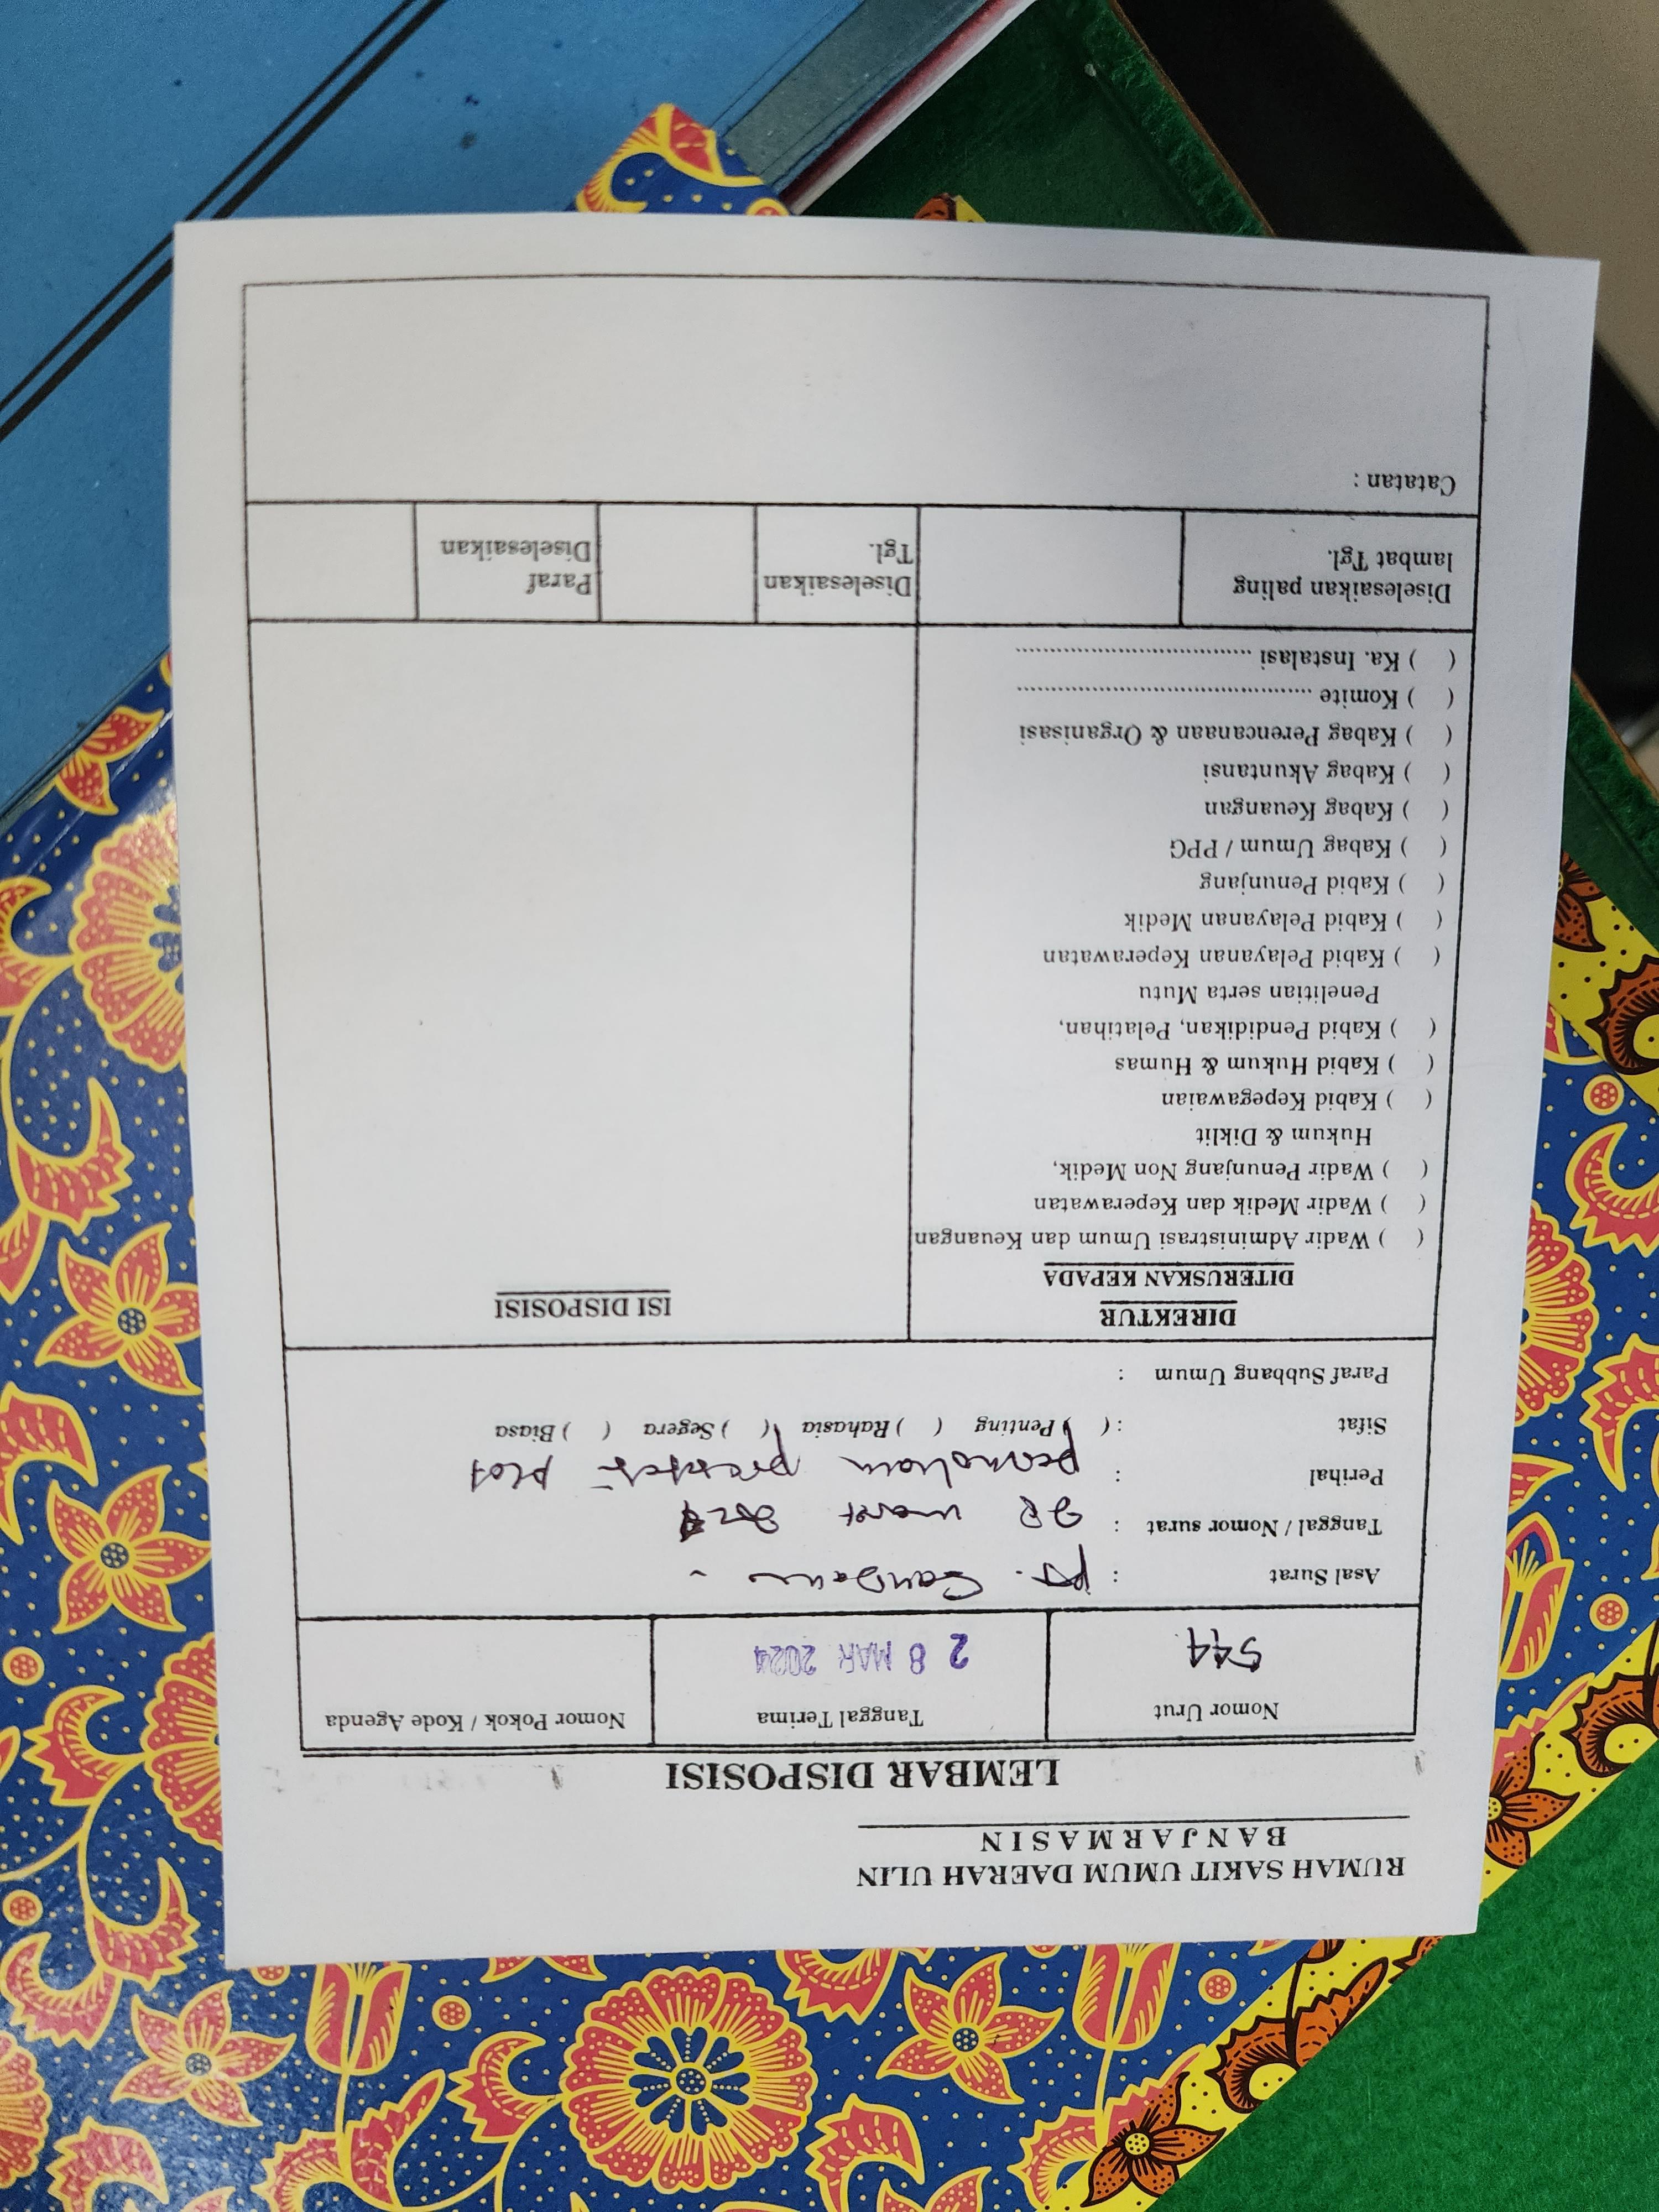 RUMAH SAKIT UMUM DAERAH ULIN
BANJARMASIN
LEMBAR DISPOSISI
Nomor Urut
Tanggal Terima
Nomor Pokok / Kode Agenda
544
28 MAR 2024
Asal Surat : PT.
Tanggal / Nomor surat : 28 maret 2024
Perihal :
Sifat : ( ) Penting ( ) Rahasia ( ) Segera ( ) Biasa
Paraf Subbang Umum :
DIREKTUR
DITERUSKAN KEPADA
( ) Wadir Administrasi Umum dan Keuangan
( ) Wadir Medik dan Keperawatan
( ) Wadir Penunjang Non Medik,
Hukum & Diklit
( ) Kabid Kepegawaian
( ) Kabid Hukum & Humas
( ) Kabid Pendidikan, Pelatihan,
Penelitian serta Mutu
( ) Kabid Pelayanan Keperawatan
( ) Kabid Pelayanan Medik
( ) Kabid Penunjang
( ) Kabag Umum / PPG
( ) Kabag Keuangan
( ) Kabag Akuntansi
( ) Kabag Perencanaan & Organisasi
( ) Komite ............................................
( ) Ka. Instalasi ...................................
ISI DISPOSISI
Diselesaikan paling
lambat Tgl.
Diselesaikan
Tgl.
Paraf
Diselesaikan
Catatan :